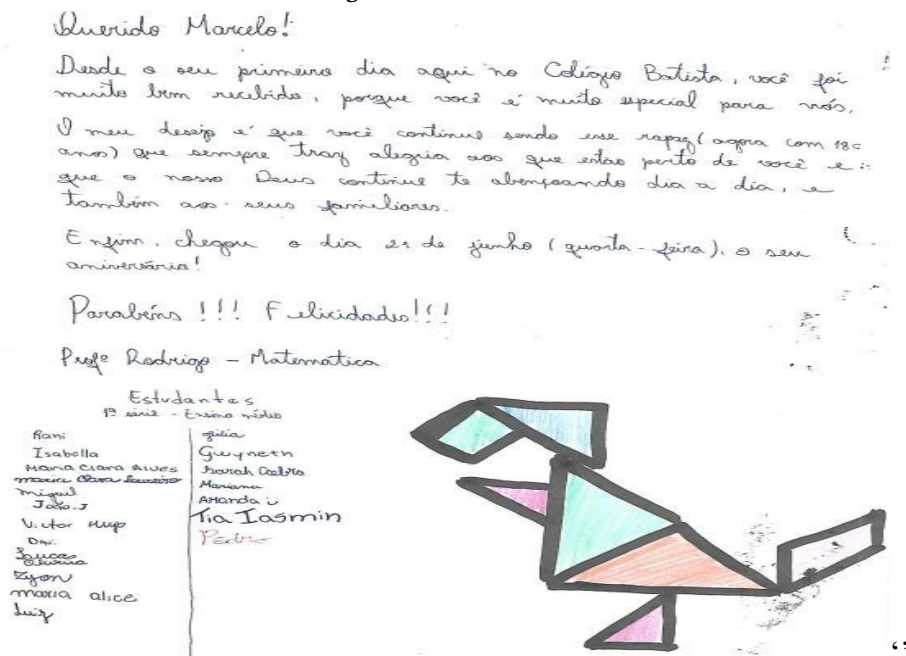 Querido Marcelo!
Desde o seu primeiro dia aqui no Colégio Batista, você foi
muito bem recebido, porque você é muito especial para nós.
O meu desejo é que você continue sendo esse rapaz (agora com 18
anos) que sempre traz alegria aos que estão perto de você e
que o nosso Deus continue te abençoando dia a dia, e
também aos seus familiares.
Enfim, chegou o dia 21 de junho (quarta-feira), o seu
aniversário!
Parabéns!!! Felicidades!!!
Profº Rodrigo - Matemática
Estudantes
1ª série - Ensino médio
Rani
Isabella
Maria Clara Alves
Maria Clara
Miguel
João.J
Victor Hugo
Davi
Lucas
Oliveira
Zyon
maria alice
Luiz
Gwyneth
Sarah Castro
Mariana
AManda
Tia Iasmin
Pedro